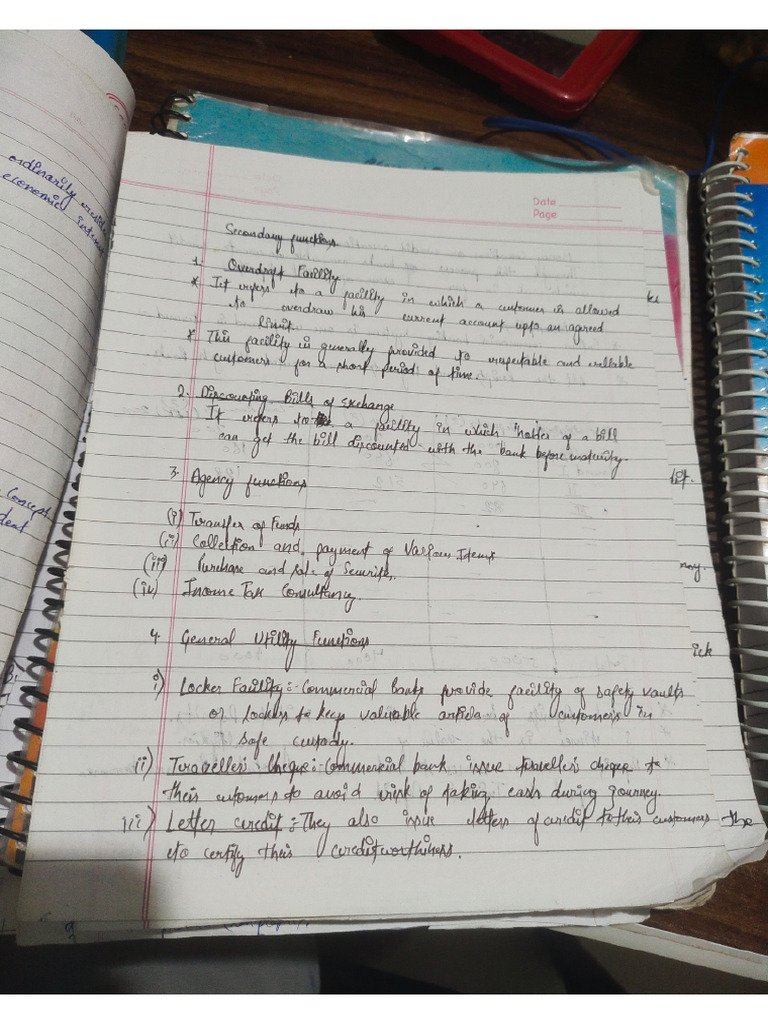 ordinarily
economic
Concept
Date
Page
Secondary functions
1. Overdraft Facility
* It refers to a facility in which a customer is allowed
to overdraw his current account upto an agreed
limit
* This facility is generally provided to respectable and reliable
customers for a short period of time.
2. Discounting Bills of Exchange
It refers to a facility in which holder of a bill
can get the bill discounted with the bank before maturity.
3. Agency functions
(i) Transfer of Funds
(ii) Collection and payment of Various Items
(iii) Purchase and sale of Securities.
(iv) Income Tax Consultancy.
4. General Utility Functions
i) Locker Facility:- Commercial banks provide facility of safety vaults
or lockers to keep valuable articles of customers in
safe custody.
ii) Traveller's Cheque:- Commercial bank issue traveller's cheque to
their customers to avoid risk of taking cash during journey.
iii) Letter credit:- They also issue letters of credit to their customers
to certify their creditworthiness.
the